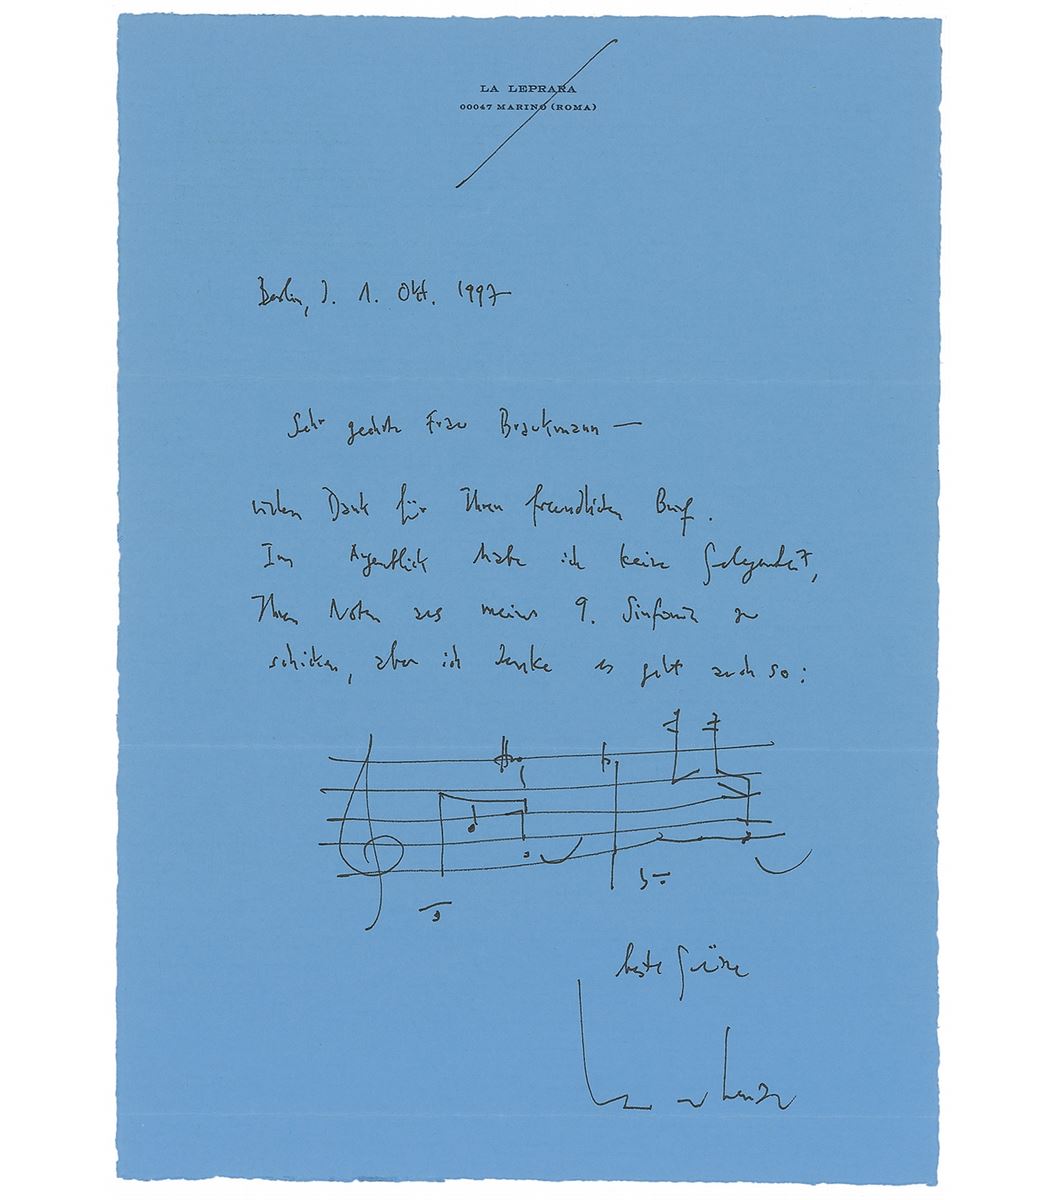 LA LEPRARA
00047 MARINO (ROMA)
Berlin, d. 1. Okt. 1997
Sehr geehrte Frau Brackmann —
vielen Dank für Ihren freundlichen Brief.
Im Augenblick habe ich keine Gelegenheit,
Ihnen Noten aus meiner 9. Sinfonie zu
schicken, aber ich denke es geht auch so:
beste Grüsse